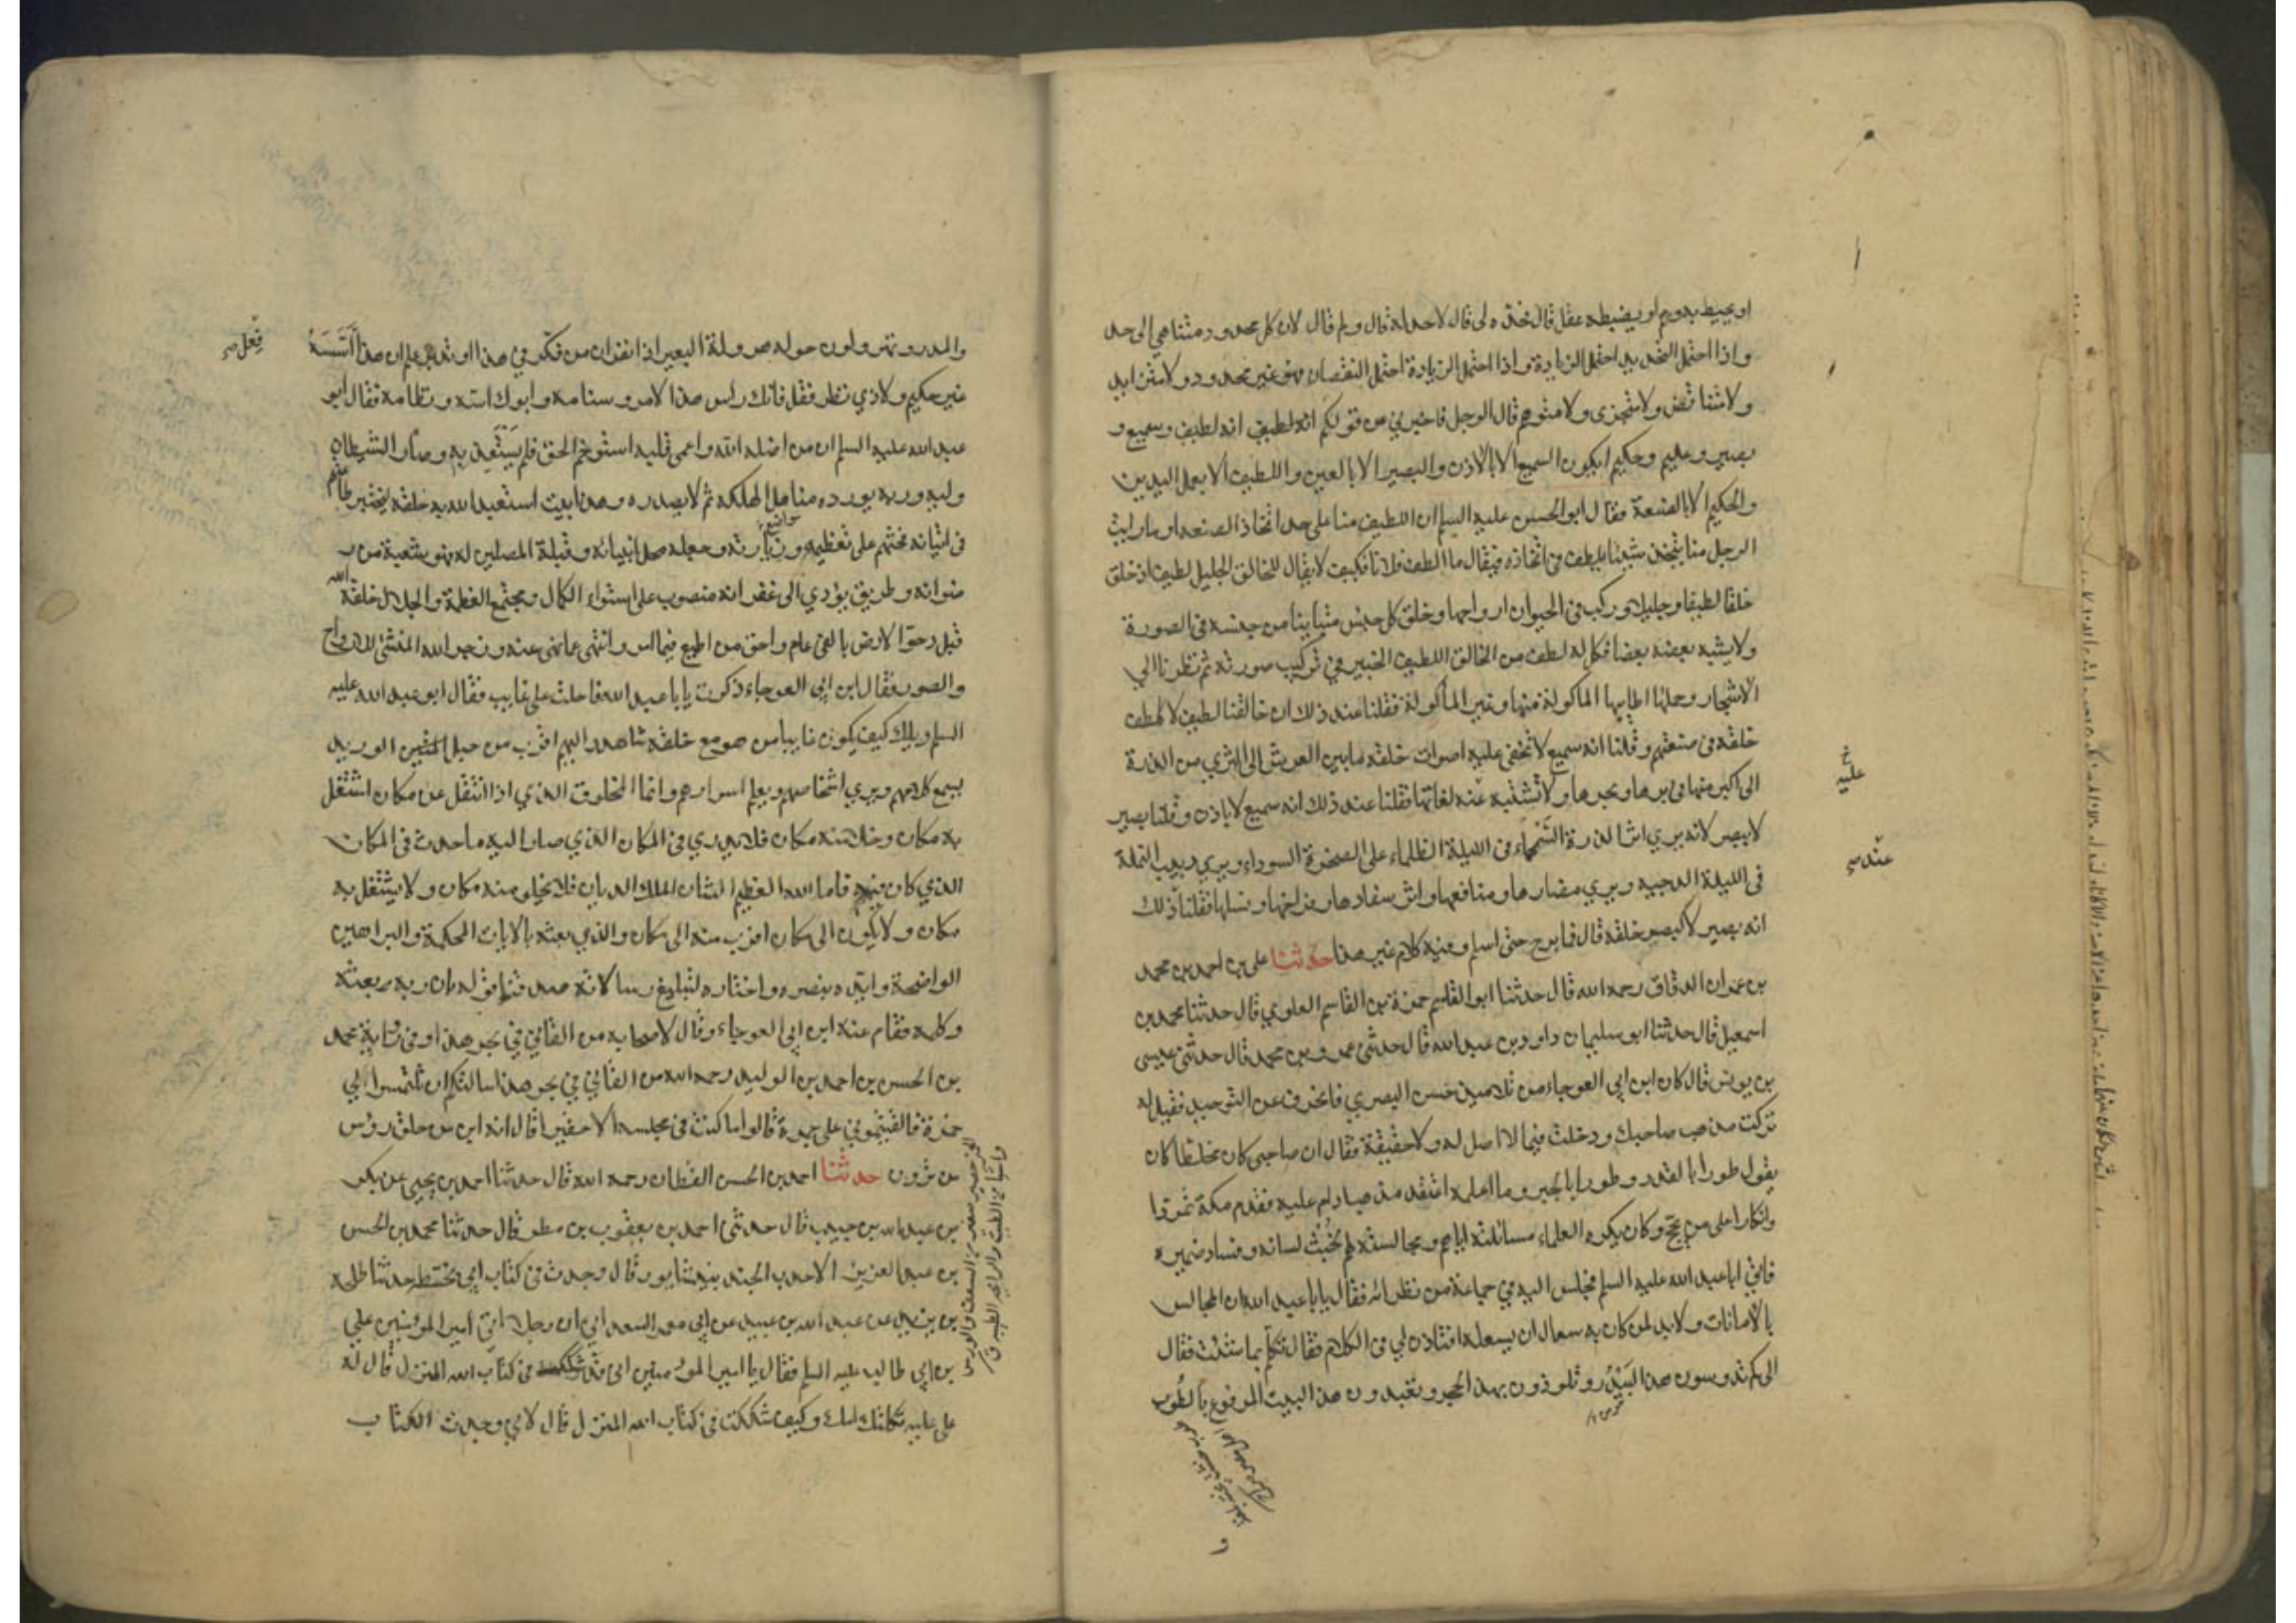 او يحيط به وهم او يضبطه عقل قال فحده لي قال لا حد له قال ولم قال لان كل محدود متناهي الى حد
واذا احتمل التحديد احتمل الزيادة واذا احتمل الزيادة احتمل النقصان فهو غير محدود ولا متزايد
ولا متناقض ولا متجزى ولا متوهم قال الرجل فاخبرني عن قولكم انه لطيف انه لطيف وسميع و
بصير وعليم وحكيم ايكون السميع الا بالاذن والبصير الا بالعين واللطيف الا بعمل اليدين
والحكيم الا بالصنعة فقال ابو الحسن عليه السلم ان اللطيف منا على حد اتخاذ الصنعه او ما رايت
الرجل منا يتخذ شيئا يلطف في اتخاذه فيقال ما الطف فلانا فكيف لا يقال للخالق الجليل لطيف اذ خلق
خلقا لطيفا وجليلا وركب في الحيوان ارواحها وخلق كل جنس متباينا من جنسه في الصورة
ولا يشبه بعضه بعضا فكل له لطف من الخالق اللطيف الخبير في تركيب صورته ثم نظرنا الي
الاشجار وحملها اطايبها الماكولة منها وغير الماكولة فقلنا عند ذلك ان خالقنا لطيف لا كلطف
خلقه في صنعتهم وقلنا انه سميع لا تخفى عليه اصوات خلقه ما بين العرش الى الثري من الذرة
الى اكبر منها في برها وبحرها ولا تشتبه عنه لغاتها فقلنا عند ذلك انه سميع لا باذن وقلنا بصير
خ
عليه
لا ببصر لانه يري اثر الذرة السحماء في الليلة الظلماء على الصخرة السوداء ويري دبيب النملة
عنده
في الليلة الدجيه ويري مضارها ومنافعها واثر سفادها وفراخها ونسلها فقلنا ذلك
انه بصير لا كبصر خلقه قال فما برح حتى اسلم وفيه كلام غير هذا حدثنا علي بن احمد بن محمد
بن عمران الدقاق رحمه الله قال حدثنا ابو القاسم حمزة بن القاسم العلوي قال حدثنا محمد بن
اسمعيل قال حدثنا ابو سليمان داود بن عبد الله قال حدثني عمرو بن محمد قال حدثني عيسى
بن يونس قال كان ابن ابي العوجاء من تلاميذ حسن البصري فانحرف عن التوحيد فقيل له
تركت مذهب صاحبك ودخلت فيما لا اصل له ولا حقيقة فقال ان صاحبي كان مخلطا كان
يقول طورا بالقدر وطورا بالجبر وما اعلمه اعتقد مذهبا دام عليه فقدم مكة تمردا
وانكارا على من يحج وكان يكره العلماء مسائلته اياهم ومجالسته لهم لخبث لسانه وفساد ضميره
فاتي ابا عبد الله عليه السلم فجلس اليه في جماعة من نظرائه فقال يا ابا عبد الله ان المجالس
بالامانات ولا بد لمن كان به سعال ان يسعل افتاذن لي في الكلام فقال تكلم بما شئت فقال
الى كم تدوسون هذا البيدر وتلوذون بهذا الحجر وتعبدون هذا البيت المرفوع بالطوب
والمدر وتهرولون حوله هرولة البعير اذا نفر ان من فكر في هذا او قدر علم ان هذا اسسه
فعل
غير حكيم ولا ذي نظر فقل فانك راس هذا الامر وسنامه وابوك اسه ونظامه فقال ابو
عبد الله عليه السلم ان من اضله الله واعمى قلبه استوخم الحق فلم يستعذبه وصار الشيطان
وليه وربه يورده مناهل الهلكه ثم لا يصدره وهذا بيت استعبد الله به خلقه ليختبر طاعتهم
في اتيانه فحثهم على تعظيمه وزيارته وجعله محل انبيائه وقبلة المصلين له فهو شعبة من
رضوانه وطريق يؤدي الى غفرانه منصوب على استواء الكمال ومجتمع العظمة والجلال خلقه الله
قبل دحو الارض بالفي عام واحق من اطيع فيما امر وانتهى عما نهى عنه وزجر الله المنشئ للارواح
والصور فقال ابن ابي العوجاء ذكرت يا با عبد الله فاحلت على غايب فقال ابو عبد الله عليه
السلم ويلك كيف يكون غايبا من هو مع خلقه شاهد واليهم اقرب من حبل الوريد
يسمع كلامهم ويري اشخاصهم ويعلم اسرارهم وانما المخلوق الذي اذا انتقل عن مكان اشتغل
به مكان وخلا منه مكان فلا يدري في المكان الذي صار اليه ما حدث في المكان
الذي كان فيه فاما الله العظيم الشان الملك الديان فلا يخلو منه مكان ولا يشتغل به
مكان ولا يكون الى مكان اقرب منه الى مكان والذي بعثه بالايات المحكمة والبراهين
الواضحة وايده بنصره واختاره لتبليغ رسالاته صدقنا قوله بان ربه بعثه
وكلمه فقام عنه ابن ابي العوجاء وقال لاصحابه من القاني في بحر هذا وفي رواية محمد
بن الحسن بن احمد بن الوليد رحمه الله من القاني في بحر هذا سالتكم ان تلتمسوا لي
خمرة فالقيتموني على جمرة قالوا ما كنت في مجلسه الا حقيرا قال انه ابن من حلق رؤس
من ترون حدثنا احمد بن الحسن القطان رحمه الله قال حدثنا احمد بن يحيى عن بكر
بن عبد الله بن حبيب قال حدثني احمد بن يعقوب بن مطر قال حدثنا محمد بن الحسن
بن عبد العزيز الاحدب الجند بنيشابور قال وجدت في كتاب ابي بخطه حدثنا طلحه
بن يزيد عن عبد الله بن عبيد عن ابي معمر السعداني ان رجلا اتى امير المؤمنين علي
بن ابي طالب عليه السلم فقال يا امير المؤمنين اني قد شككت في كتاب الله المنزل قال له
علي عليه ثكلتك امك وكيف شككت في كتاب الله المنزل قال لاني وجدت الكتاب